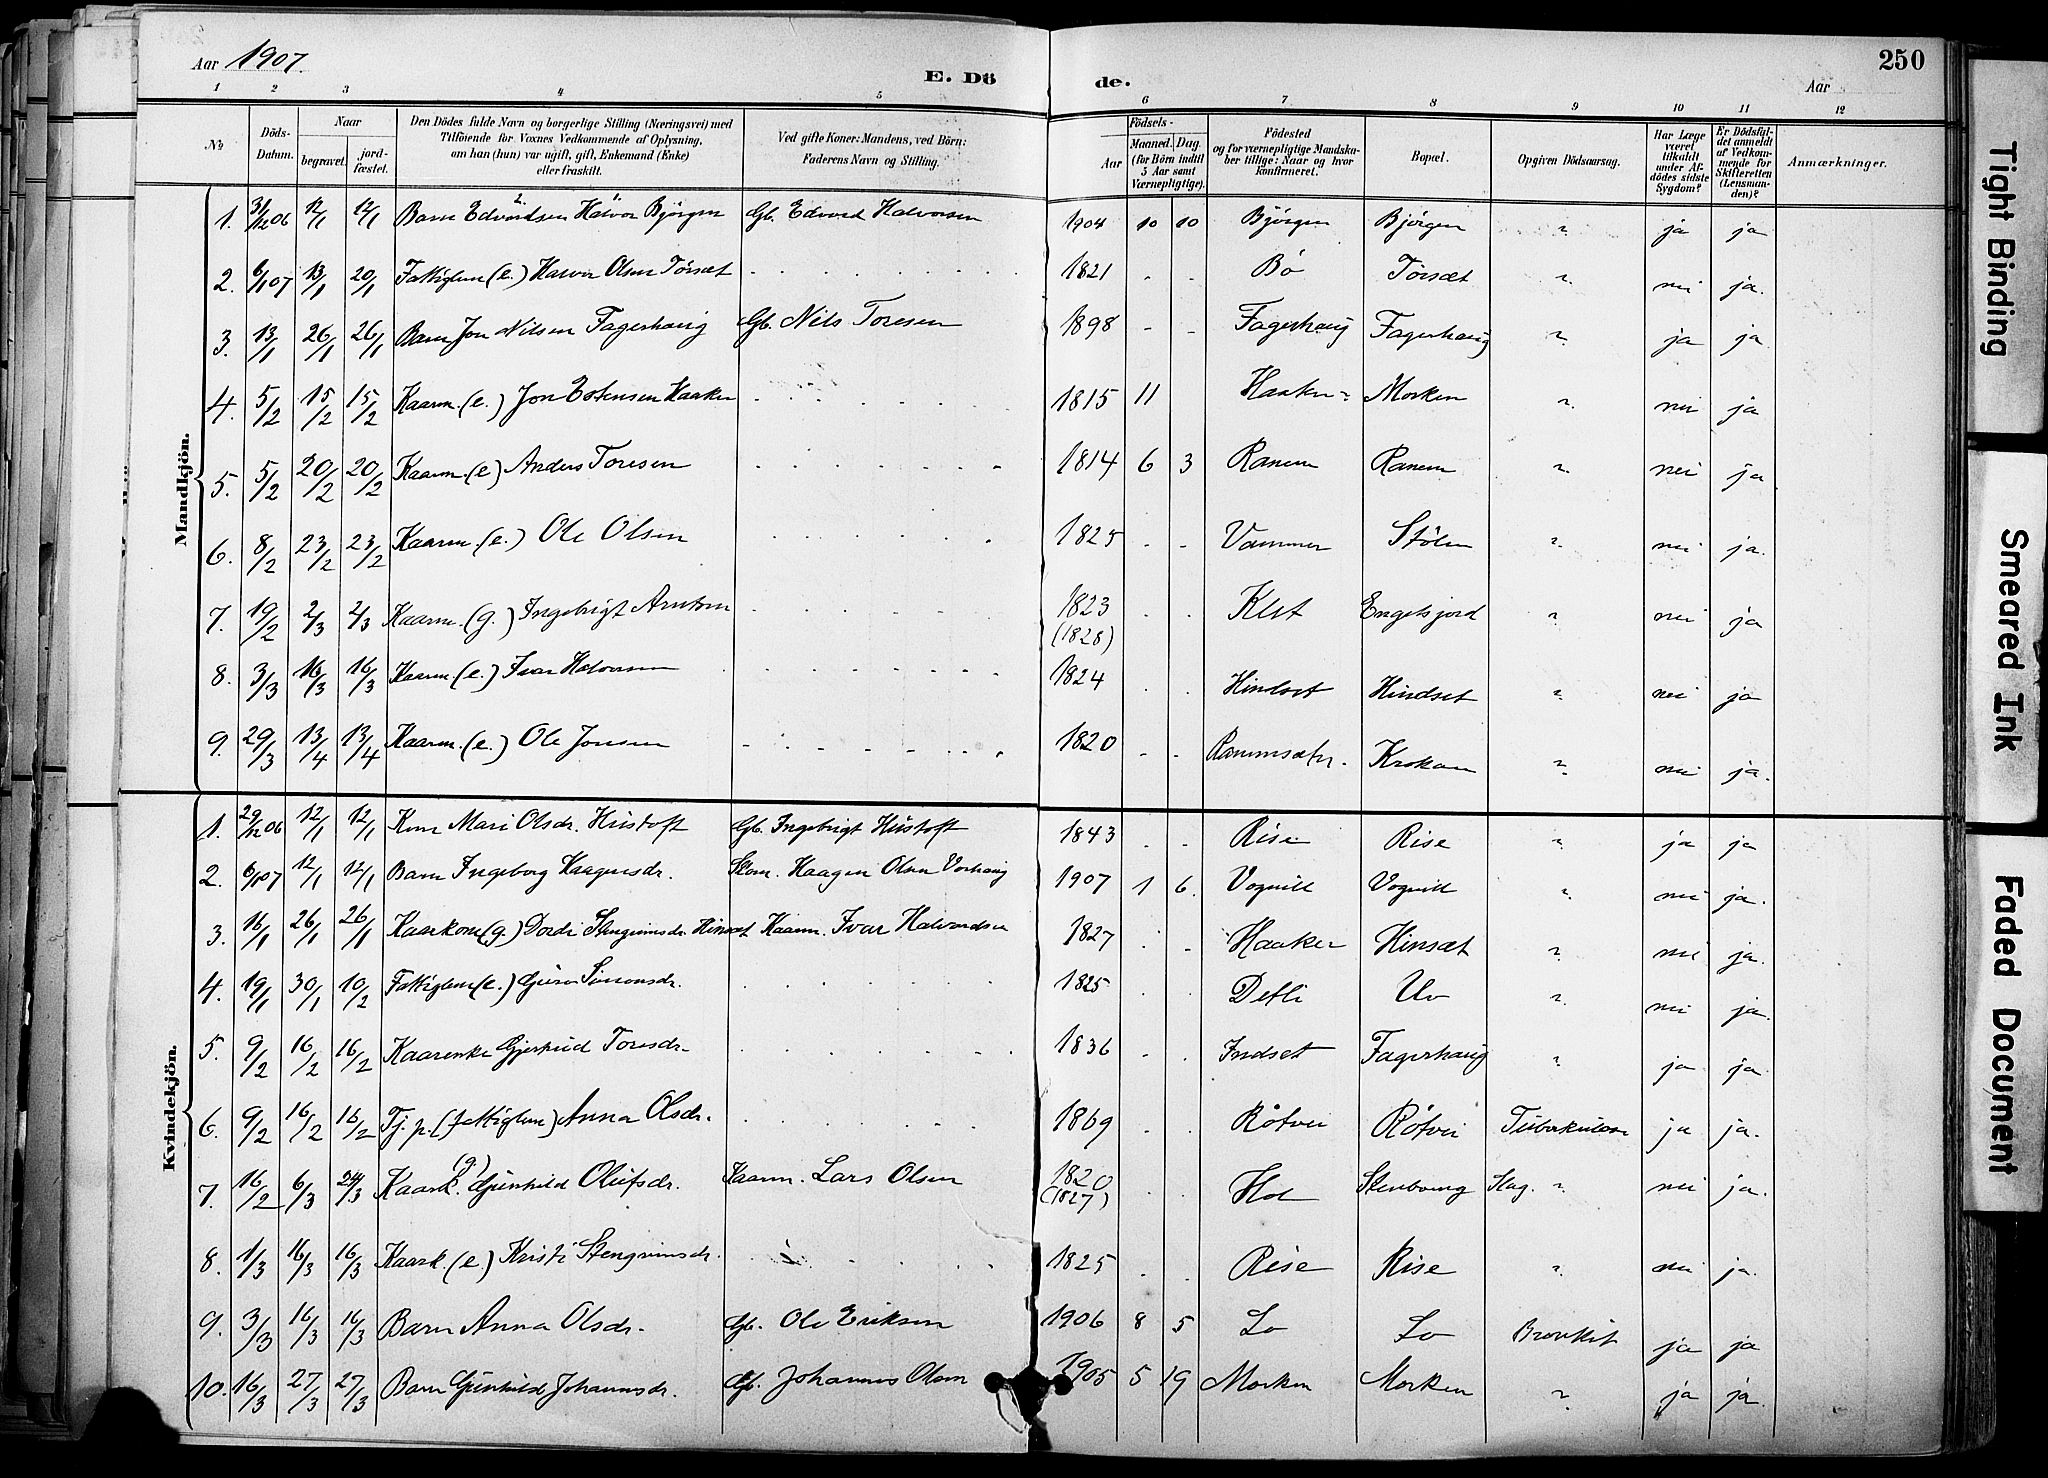 Aar 1907. E. Dö de. Aar 250
1 2 3 4 5 6 7 8 9 10 11 12
№ Döds-Datum. Naar begravet. jord-fæstet. Den Dödes fulde Navn og borgerlige Stilling (Næringsvei) med Tilföiende for Voxnes Vedkommende af Oplysning, om han (hun) var ugift, gift, Enkemand (Enke) eller fraskilt. Ved gifte Koner: Mandens, ved Börn: Faderens Navn og Stilling. Födsels- Aar Maaned. Dag. (for Börn indtil 5 Aar samt Værnepligtige). Födested og for værnepligtige Mandskaber tillige: Naar og hvor konfirmeret. Bopæl. Opgiven Dödsaarsag. Har Læge været tilkaldt under Afdödes sidste Sygdom? Er Dödsfaldet anmeldt af Vedkommende for Skifteretten (Lensmanden)? Anmærkninger.
Mandkjön.
1. 31/12 06 12/1 12/1 Barn Edvardsen Halvor Bjørgen Gb. Edvard Halvorsen 1904 10 10 Bjørgen Bjørgen " ja ja
2. 6/1 07 13/1 20/1 Fattiglem (e.) Halvor Olsen Torsæt 1821 - - Bö Torsæt " nei ja.
3. 13/1 26/1 26/1 Barn Jon Nilsen Fagerhaug Gb. Nils Toresen 1898 - - Fagerhaug Fagerhaug " ja ja.
4. 5/2 15/2 15/2 Kaarm. (e.) Jon Estensen Haaker 1815 11 Haaker Morken " nei ja
5. 5/2 20/2 20/2 Kaarm. (e) Anders Toresen 1814 6 3 Ranem Ranem " nei ja
6. 8/2 23/2 23/2 Kaarm. (e.) Ole Olsen 1825 - - Vammer Stölen " nei ja.
7. 19/2 2/3 2/3 Kaarm. (g.) Ingebrigt Arntsen 1823 (1828) Klet Engelsjord " nei ja
8. 3/3 16/3 16/3 Kaarm. (e.) Ivar Halvorsen 1824 Hindset Hindset " nei ja
9. 29/3 13/4 13/4 Kaarm. (e.) Ole Jonsen 1820 - - Ranemsætr. Krokan " nei ja.
Kvindekjön.
1. 29/12 06 12/1 12/1 Kone Mari Olsdr. Hustoft Gb. Ingebrigt Hustoft 1843 Rise Rise " ja ja
2. 6/1 07 12/1 12/1 Barn Ingeborg Haagensdr. Skom. Haagen Olsen Vorhaug 1907 1 6 Vognill Vognill " nei ja.
3. 16/1 26/1 26/1 Kaarkone (g.) Dordi Stengrimsdr. Hinsæt Kaarm. Ivar Halvordsen 1827 Haaker Hinsæt " nei ja.
4. 19/1 30/1 10/2 Fattiglem (e.) Guro Simonsdr. 1825 Detli Uv " nei ja.
5. 9/2 16/2 16/2 Kaarenke Gjertrud Toresdr. 1836 Indset Fagerhaug " ja ja.
6. 9/2 16/2 16/2 Tj. p. (fattiglem) Anna Olsdr. 1869 Rötvei Rötvei Tuberkulose ja ja.
7. 16/2 6/3 24/3 Kaark. (g) Gunhild Olufsdr. Kaarm. Lars Olsen 1820 (1827) Hol Stenboug Slag. " nei ja.
8. 1/3 16/3 16/3 Kaark. (e) Kristi Stengrimsdr. 1825 Rise Rise " nei ja.
9. 3/3 16/3 16/3 Barn Anna Olsdr. Gb. Ole Eriksen 1906 8 5 Lo Lo Bronkit ja ja
10. 16/3 27/3 27/3 Barn Gunhild Johannesdr. Gb. Johannes Olsen 1905 5 19 Morken Morken " ja ja.
Tight Binding
Smeared Ink
Faded Document